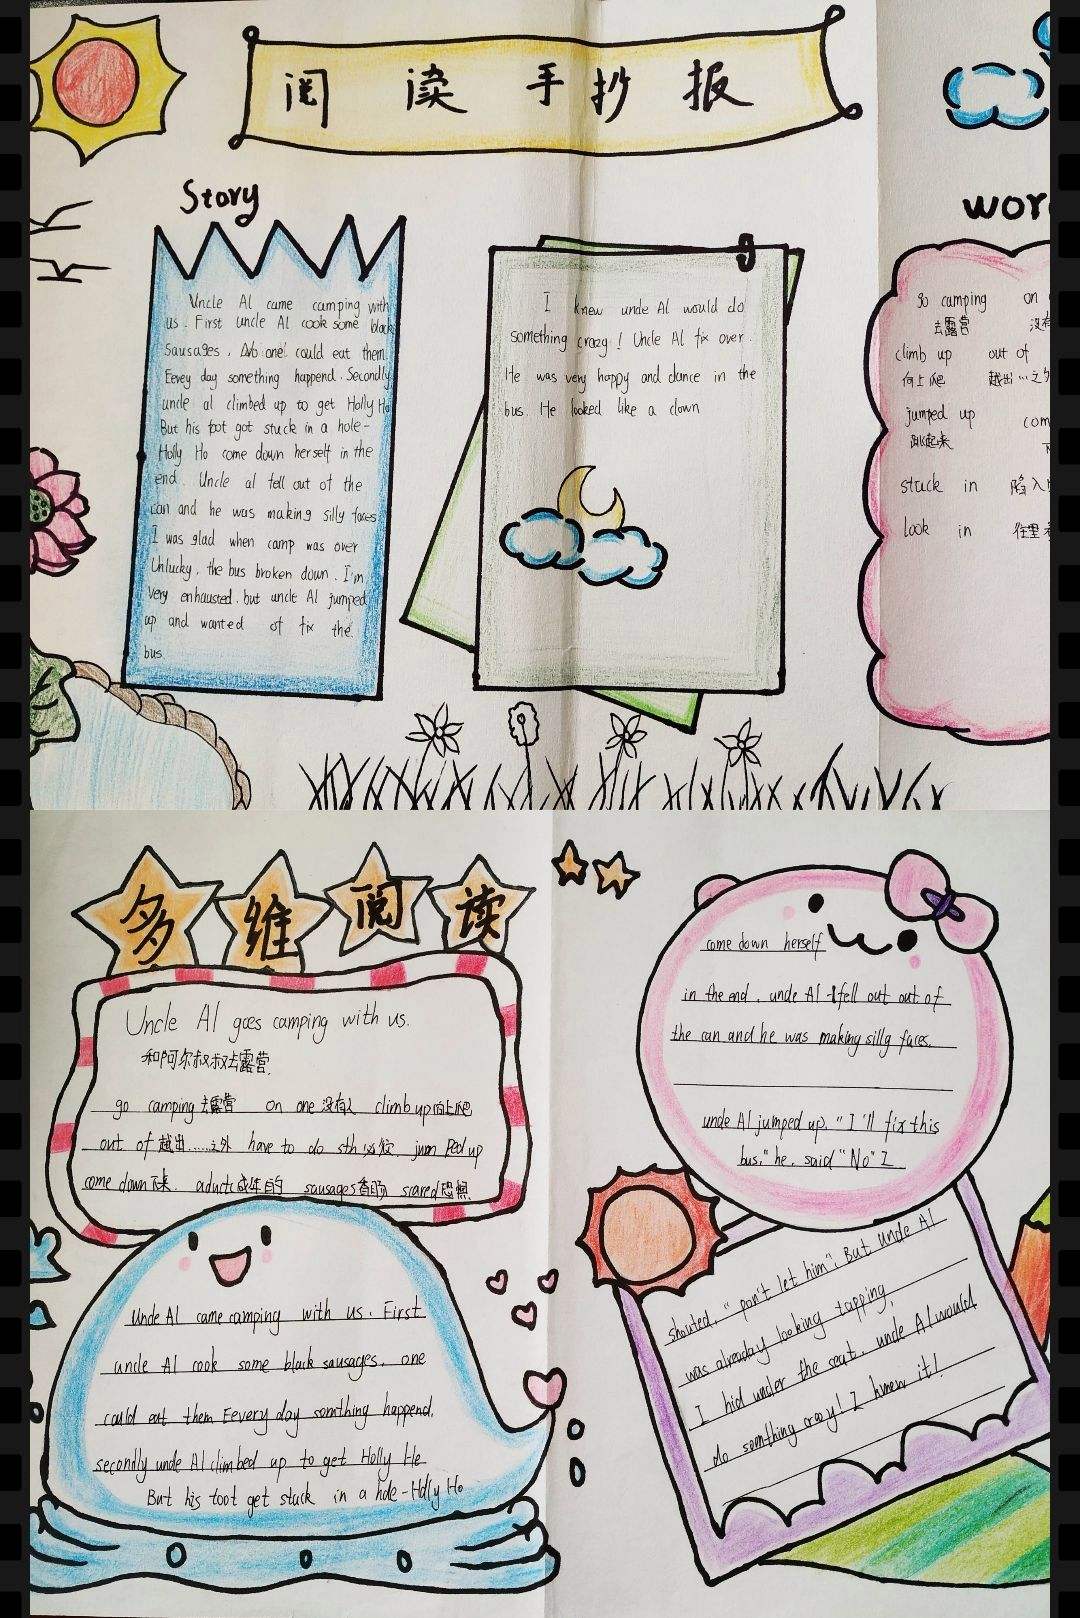 阅 读 手抄报
Story
Uncle Al came camping with
us. First uncle Al cook some black
Sausages. No one could eat them
Eevey day something happend. Secondly
uncle al climbed up to get Holly Ho
But his foot got stuck in a hole-
Holly Ho come down herself in the
end. Uncle al fell out of the
can and he was making silly faces
I was glad when camp was over
Unlucky, the bus broken down. I'm
very enhausted. but uncle Al jumped
up and wanted of fix the
bus
I knew uncle Al would do
something crazy! Uncle Al fix over.
He was very happy and dance in the
bus. He looked like a clown
wor
go camping on
去露营 没有
climb up out of
向上爬 越出…之外
jumped up com
跳起来 下
stuck in 陷入
look in 往里看
多维阅读
Uncle Al goes camping with us.
和阿尔叔叔去露营.
go camping去露营 on one没有人 climb up向上爬
out of 越出……之外 have to do sth 必须. jum Ped up
come down下来. aduct成年的 sausages香肠 scared恐惧
Uncle Al came camping with us. First
uncle Al cook some black sausages. one
could eat them Eevery day somthing happend.
secondly uncle Al climbed up to get Holly He
But his foot get stuck in a hole-Holly Ho
come down herself
in the end. uncle Al fell out out of
the can and he was making silly faces.
uncle Al jumped up. "I'll fix this
bus," he. said "No" I
shouted, "Don't let him". But uncle Al
was alreaday looking tapping.
I hid under the seat. uncle Al would
do somthing crazy! I knew it!